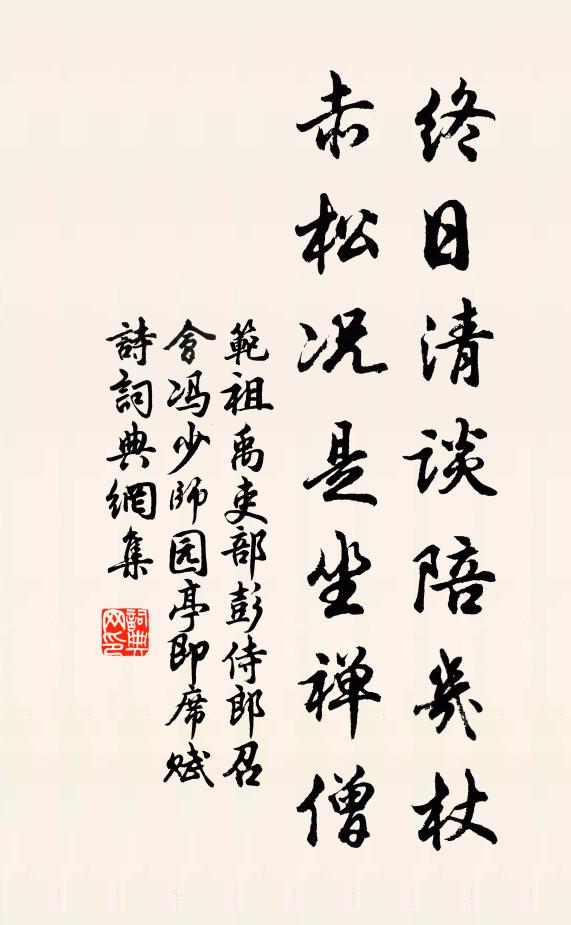 终日清谈陪几杖
赤松况是坐禅僧
範祖禹吏部彭侍郎召
會冯少師园亭即席赋
詩詞典網集
詞典
网印